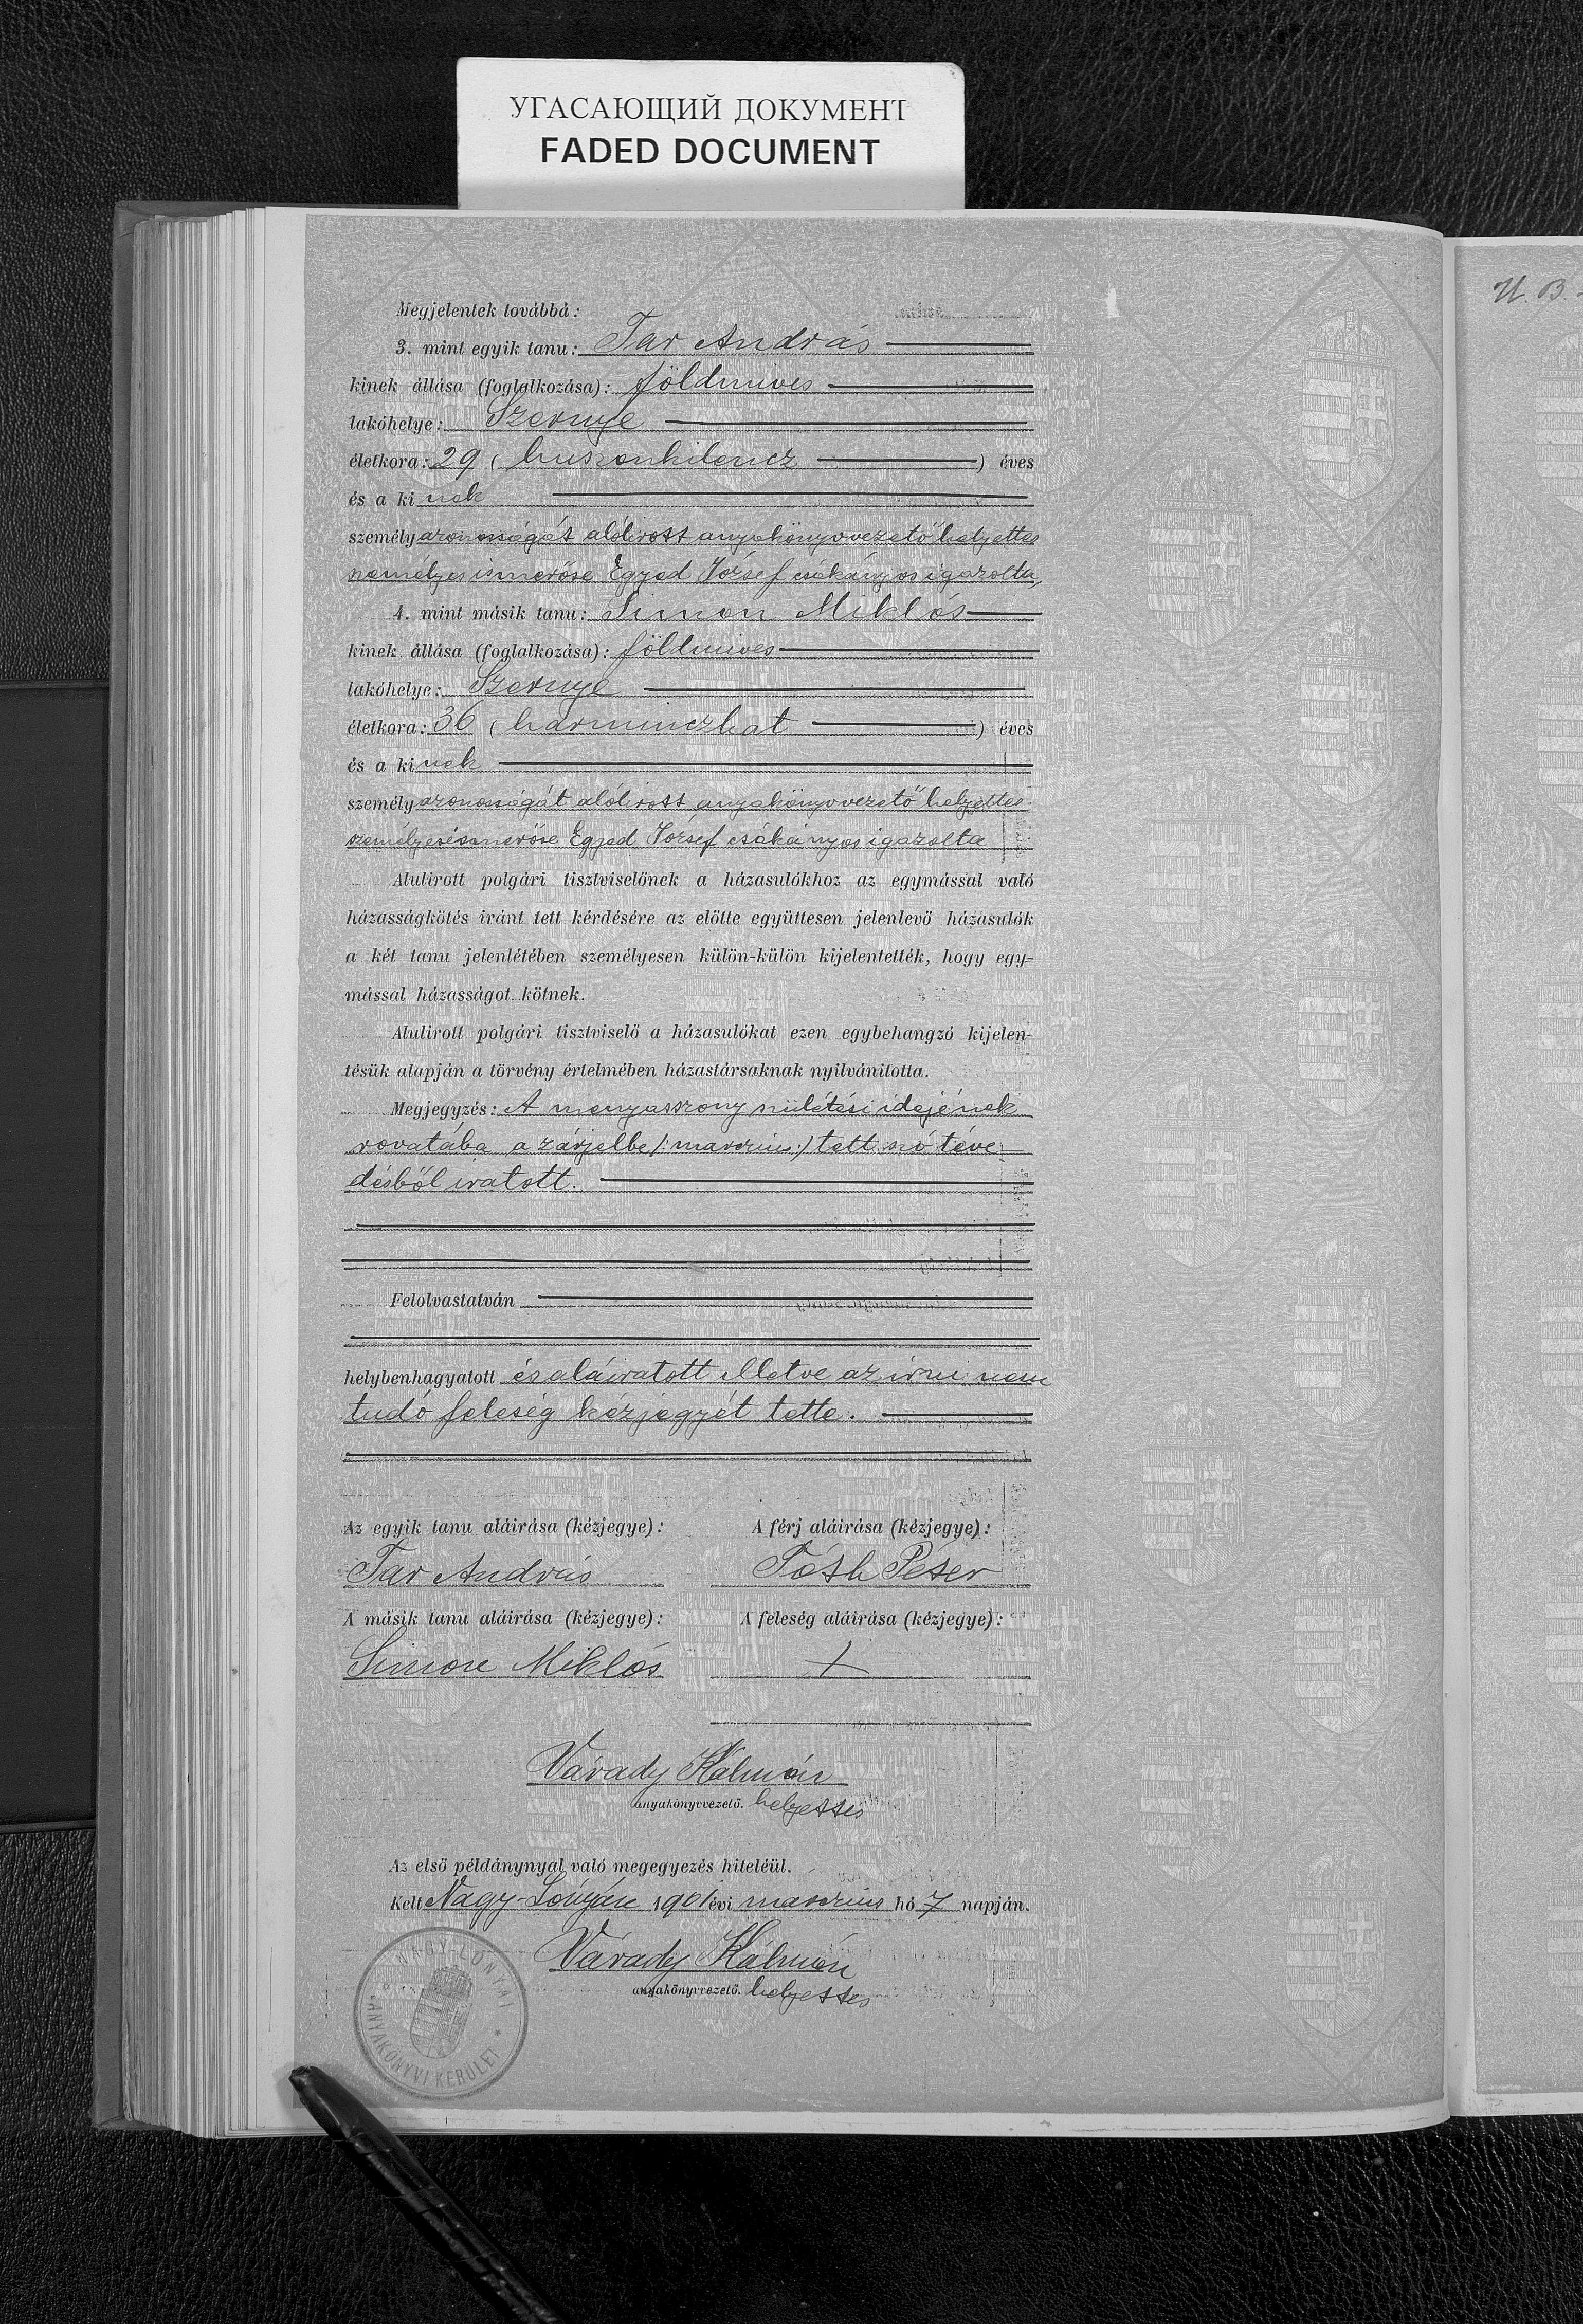 УГАСАЮЩИЙ ДОКУМЕНТ
FADED DOCUMENT
U. B.
Megjelentek továbbá:
3. mint egyik tanu: Tar András
kinek állása (foglalkozása): földmives
lakóhelye: Szernye
életkora: 29 ( huszonkilencz ) éves
és a kinek
személyazonosságát alólirott anyakönyvvezető helyettes
személyes ismerőse Egyed József csákányos igazolta,
4. mint másik tanu: Simon Miklós
kinek állása (foglalkozása): földmives
lakóhelye: Szernye
életkora: 36 ( harminczhat ) éves
és a kinek
személyazonosságát alólirott anyakönyvvezető helyettes
személyes ismerőse Egyed József csákányos igazolta
Alulirott polgári tisztviselőnek a házasulókhoz az egymással való
házasságkötés iránt tett kérdésére az előtte együttesen jelenlevő házasulók
a két tanu jelenlétében személyesen külön-külön kijelentették, hogy egy-
mással házasságot kötnek.
Alulirott polgári tisztviselő a házasulókat ezen egybehangzó kijelen-
tésük alapján a törvény értelmében házastársaknak nyilvánitotta.
Megjegyzés: A menyasszony születési idejének
rovatába a zárjelbe /: marczius :/ tett szó téve-
désből iratott.
Felolvastatván
helybenhagyatott és aláiratott illetve az irni nem
tudó feleség kézjegyét tette.
Az egyik tanu aláirása (kézjegye): A férj aláirása (kézjegye):
Tar András Tóth Péter
A másik tanu aláirása (kézjegye): A feleség aláirása (kézjegye):
Simon Miklós X
Várady Kálmán
anyakönyvvezető. helyettes
Az első példánynyal való megegyezés hiteléül.
Kelt Nagy-Lónyán 1901 évi marczius hó 7 napján.
Várady Kálmán
anyakönyvvezető. helyettes
NAGY-LÓNYAI
ANYAKÖNYVI KERÜLET